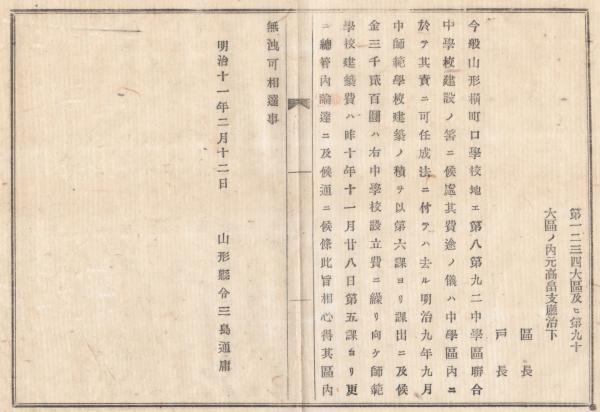 第一二三四大區及ヒ第九十
大區ノ內元高畠支廳治下
區長
戸長
今般山形橫町口學校地エ第八第九二中學區聯合
中學校建設ノ筈ニ候處其費途ノ儀ハ中學區內ニ
於テ其責ニ可任成法ニ付テハ去ル明治九年九月
中師範學校建築ノ積ヲ以第六課ヨリ課出ニ及候
金三千貮百圓ハ右中學校設立費ニ繰リ向ケ師範
學校建築費ハ昨十年十一月廿八日第五課ヨリ更
ニ總管內諭達ニ及候通ニ候條此旨相心得其區內
無洩可相達事
明治十一年二月十二日
山形縣令三島通庸